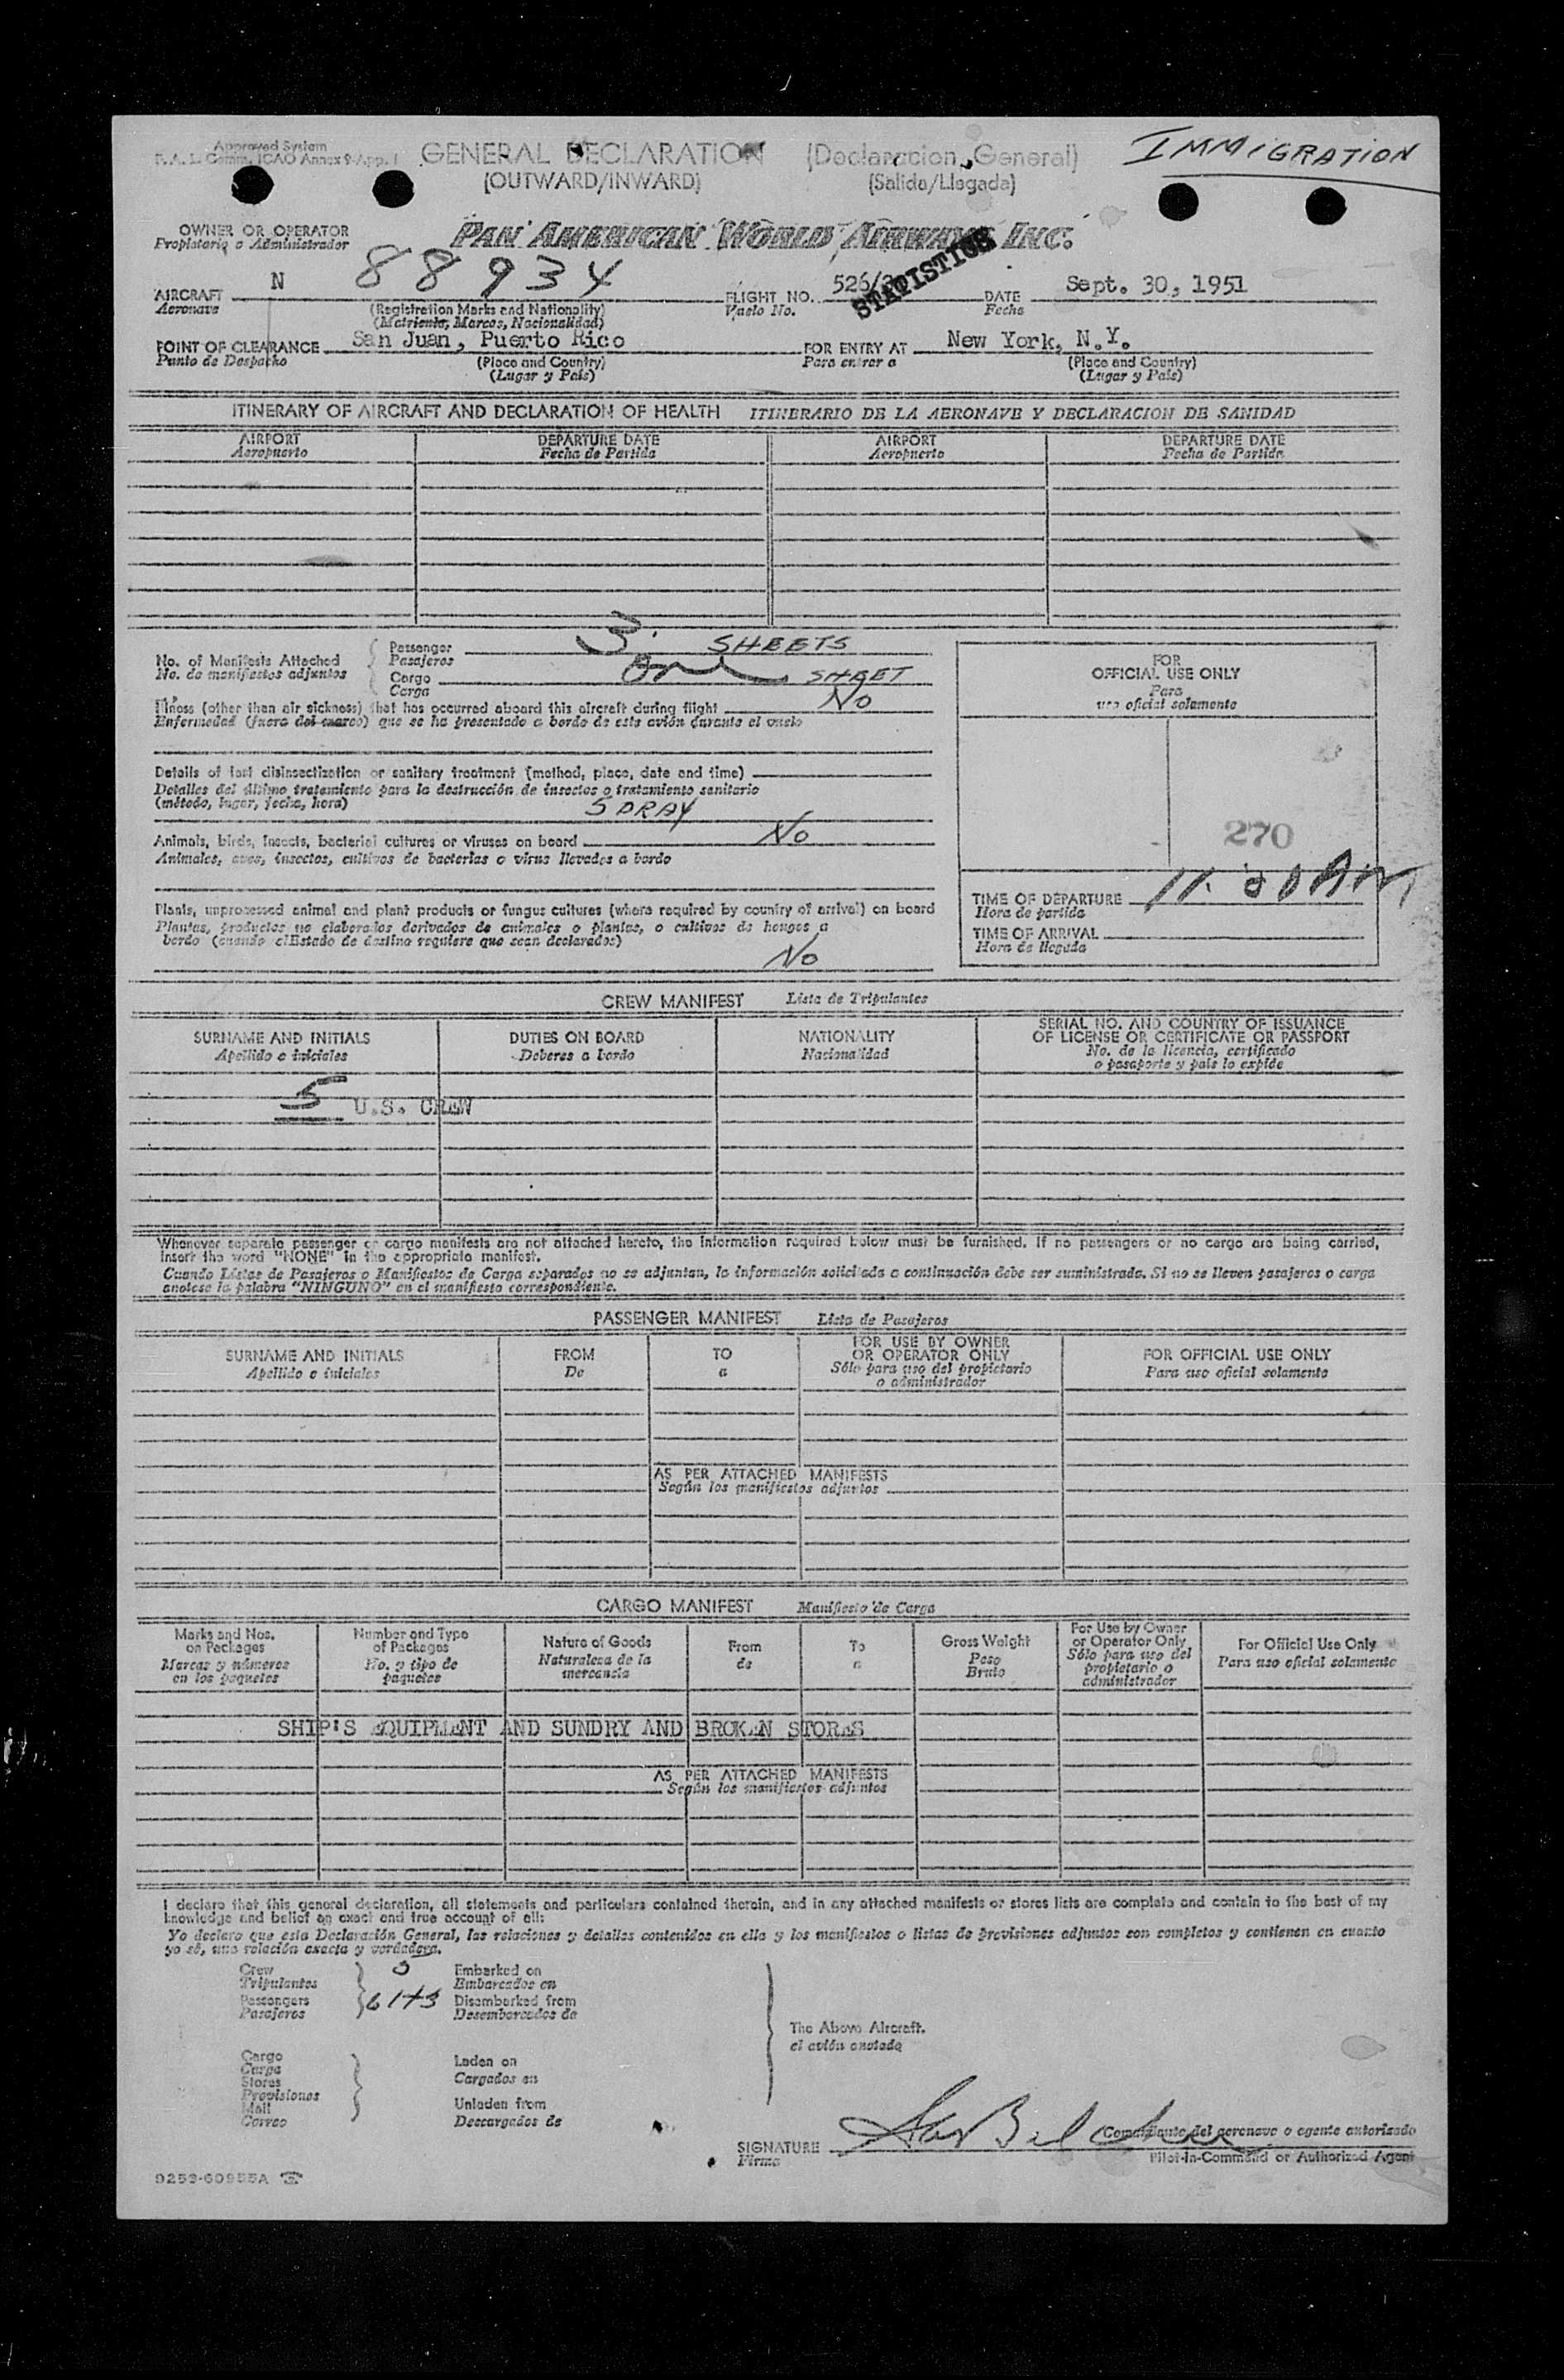 Approved System
F. A. L. Comm. ICAO Annex 9-App. 1
GENERAL DECLARATION (Declaracion General)
IMMIGRATION
(OUTWARD/INWARD) (Salida/Llegada)
OWNER OR OPERATOR
Propietario o Administrador
PAN AMERICAN WORLD AIRWAYS INC.
STATISTICS
AIRCRAFT N 88934 FLIGHT NO. 526/ DATE Sept. 30, 1951
Aeronave (Registration Marks and Nationality) Vuelo No. Fecha
(Matricula, Marcas, Nacionalidad)
POINT OF CLEARANCE San Juan, Puerto Rico FOR ENTRY AT New York, N.Y.
Punto de Despacho (Place and Country) Para entrar a (Place and Country)
(Lugar y Pais) (Lugar y Pais)
ITINERARY OF AIRCRAFT AND DECLARATION OF HEALTH ITINERARIO DE LA AERONAVE Y DECLARACION DE SANIDAD
AIRPORT DEPARTURE DATE AIRPORT DEPARTURE DATE
Aeropuerto Fecha de Partida Aeropuerto Fecha de Partida
No. of Manifests Attached
No. de manifiestos adjuntos
Passenger 3 SHEETS
Pasajeros
Cargo One SHEET
Carga
Illness (other than air sickness) that has occurred aboard this aircraft during flight No
Enfermedad (fuera del mareo) que se ha presentado a bordo de este avión durante el vuelo
Details of last disinsectization or sanitary treatment (method, place, date and time)
Detalles del último tratamiento para la destrucción de insectos o tratamiento sanitario
(método, lugar, fecha, hora)
SPRAY
Animals, birds, insects, bacterial cultures or viruses on board No
Animales, aves, insectos, cultivos de bacterias o virus llevados a bordo
Plants, unprocessed animal and plant products or fungus cultures (where required by country of arrival) on board
Plantas, productos no elaborados derivados de animales o plantas, o cultivos de hongos a
bordo (cuando el Estado de destino requiere que sean declarados)
No
FOR
OFFICIAL USE ONLY
Para
uso oficial solamente
270
TIME OF DEPARTURE 11:00 AM
Hora de partida
TIME OF ARRIVAL
Hora de llegada
CREW MANIFEST Lista de Tripulantes
SURNAME AND INITIALS DUTIES ON BOARD NATIONALITY SERIAL NO. AND COUNTRY OF ISSUANCE
OF LICENSE OR CERTIFICATE OR PASSPORT
Apellido e iniciales Deberes a bordo Nacionalidad No. de la licencia, certificado
o pasaporte y pais lo expide
5 U.S. CREW
Whenever separate passenger or cargo manifests are not attached hereto, the information required below must be furnished. If no passengers or no cargo are being carried,
insert the word "NONE" in the appropriate manifest.
Cuando Listas de Pasajeros o Manifiestos de Carga separados no se adjuntan, la información solicitada a continuación debe ser suministrada. Si no se lleven pasajeros o carga
anotese la palabra "NINGUNO" en el manifiesto correspondiente.
PASSENGER MANIFEST Lista de Pasajeros
SURNAME AND INITIALS FROM TO FOR USE BY OWNER
OR OPERATOR ONLY FOR OFFICIAL USE ONLY
Apellido e iniciales De a Sólo para uso del propietario
o administrador Para uso oficial solamente
AS PER ATTACHED MANIFESTS
Según los manifiestos adjuntos
CARGO MANIFEST Manifiesto de Carga
Marks and Nos.
on Packages
Marcas y números
en los paquetes
Number and Type
of Packages
No. y tipo de
paquetes
Nature of Goods
Naturaleza de la
mercancia
From
de
To
a
Gross Weight
Peso
Bruto
For Use by Owner
or Operator Only
Sólo para uso del
propietario o
administrador
For Official Use Only
Para uso oficial solamente
SHIP'S EQUIPMENT AND SUNDRY AND BROKEN STORES
AS PER ATTACHED MANIFESTS
Según los manifiestos adjuntos
I declare that this general declaration, all statements and particulars contained therein, and in any attached manifests or stores lists are complete and contain to the best of my
knowledge and belief an exact and true account of all:
Yo declaro que esta Declaración General, las relaciones y detalles contenidos en ella y los manifiestos o listas de provisiones adjuntos son completos y contienen en cuanto
yo sé, una relación exacta y verdadera.
Crew 5 Embarked on
Tripulantes Embarcados en
Passengers 61+3 Disembarked from
Pasajeros Desembarcados de
The Above Aircraft.
el avión anotado
Cargo Laden on
Carga Cargados en
Stores
Provisiones
Mail Unladen from
Correo Descargados de
Comandante del aeronave o agente autorizado
SIGNATURE
Firma Pilot-in-Command or Authorized Agent
9253-60955A